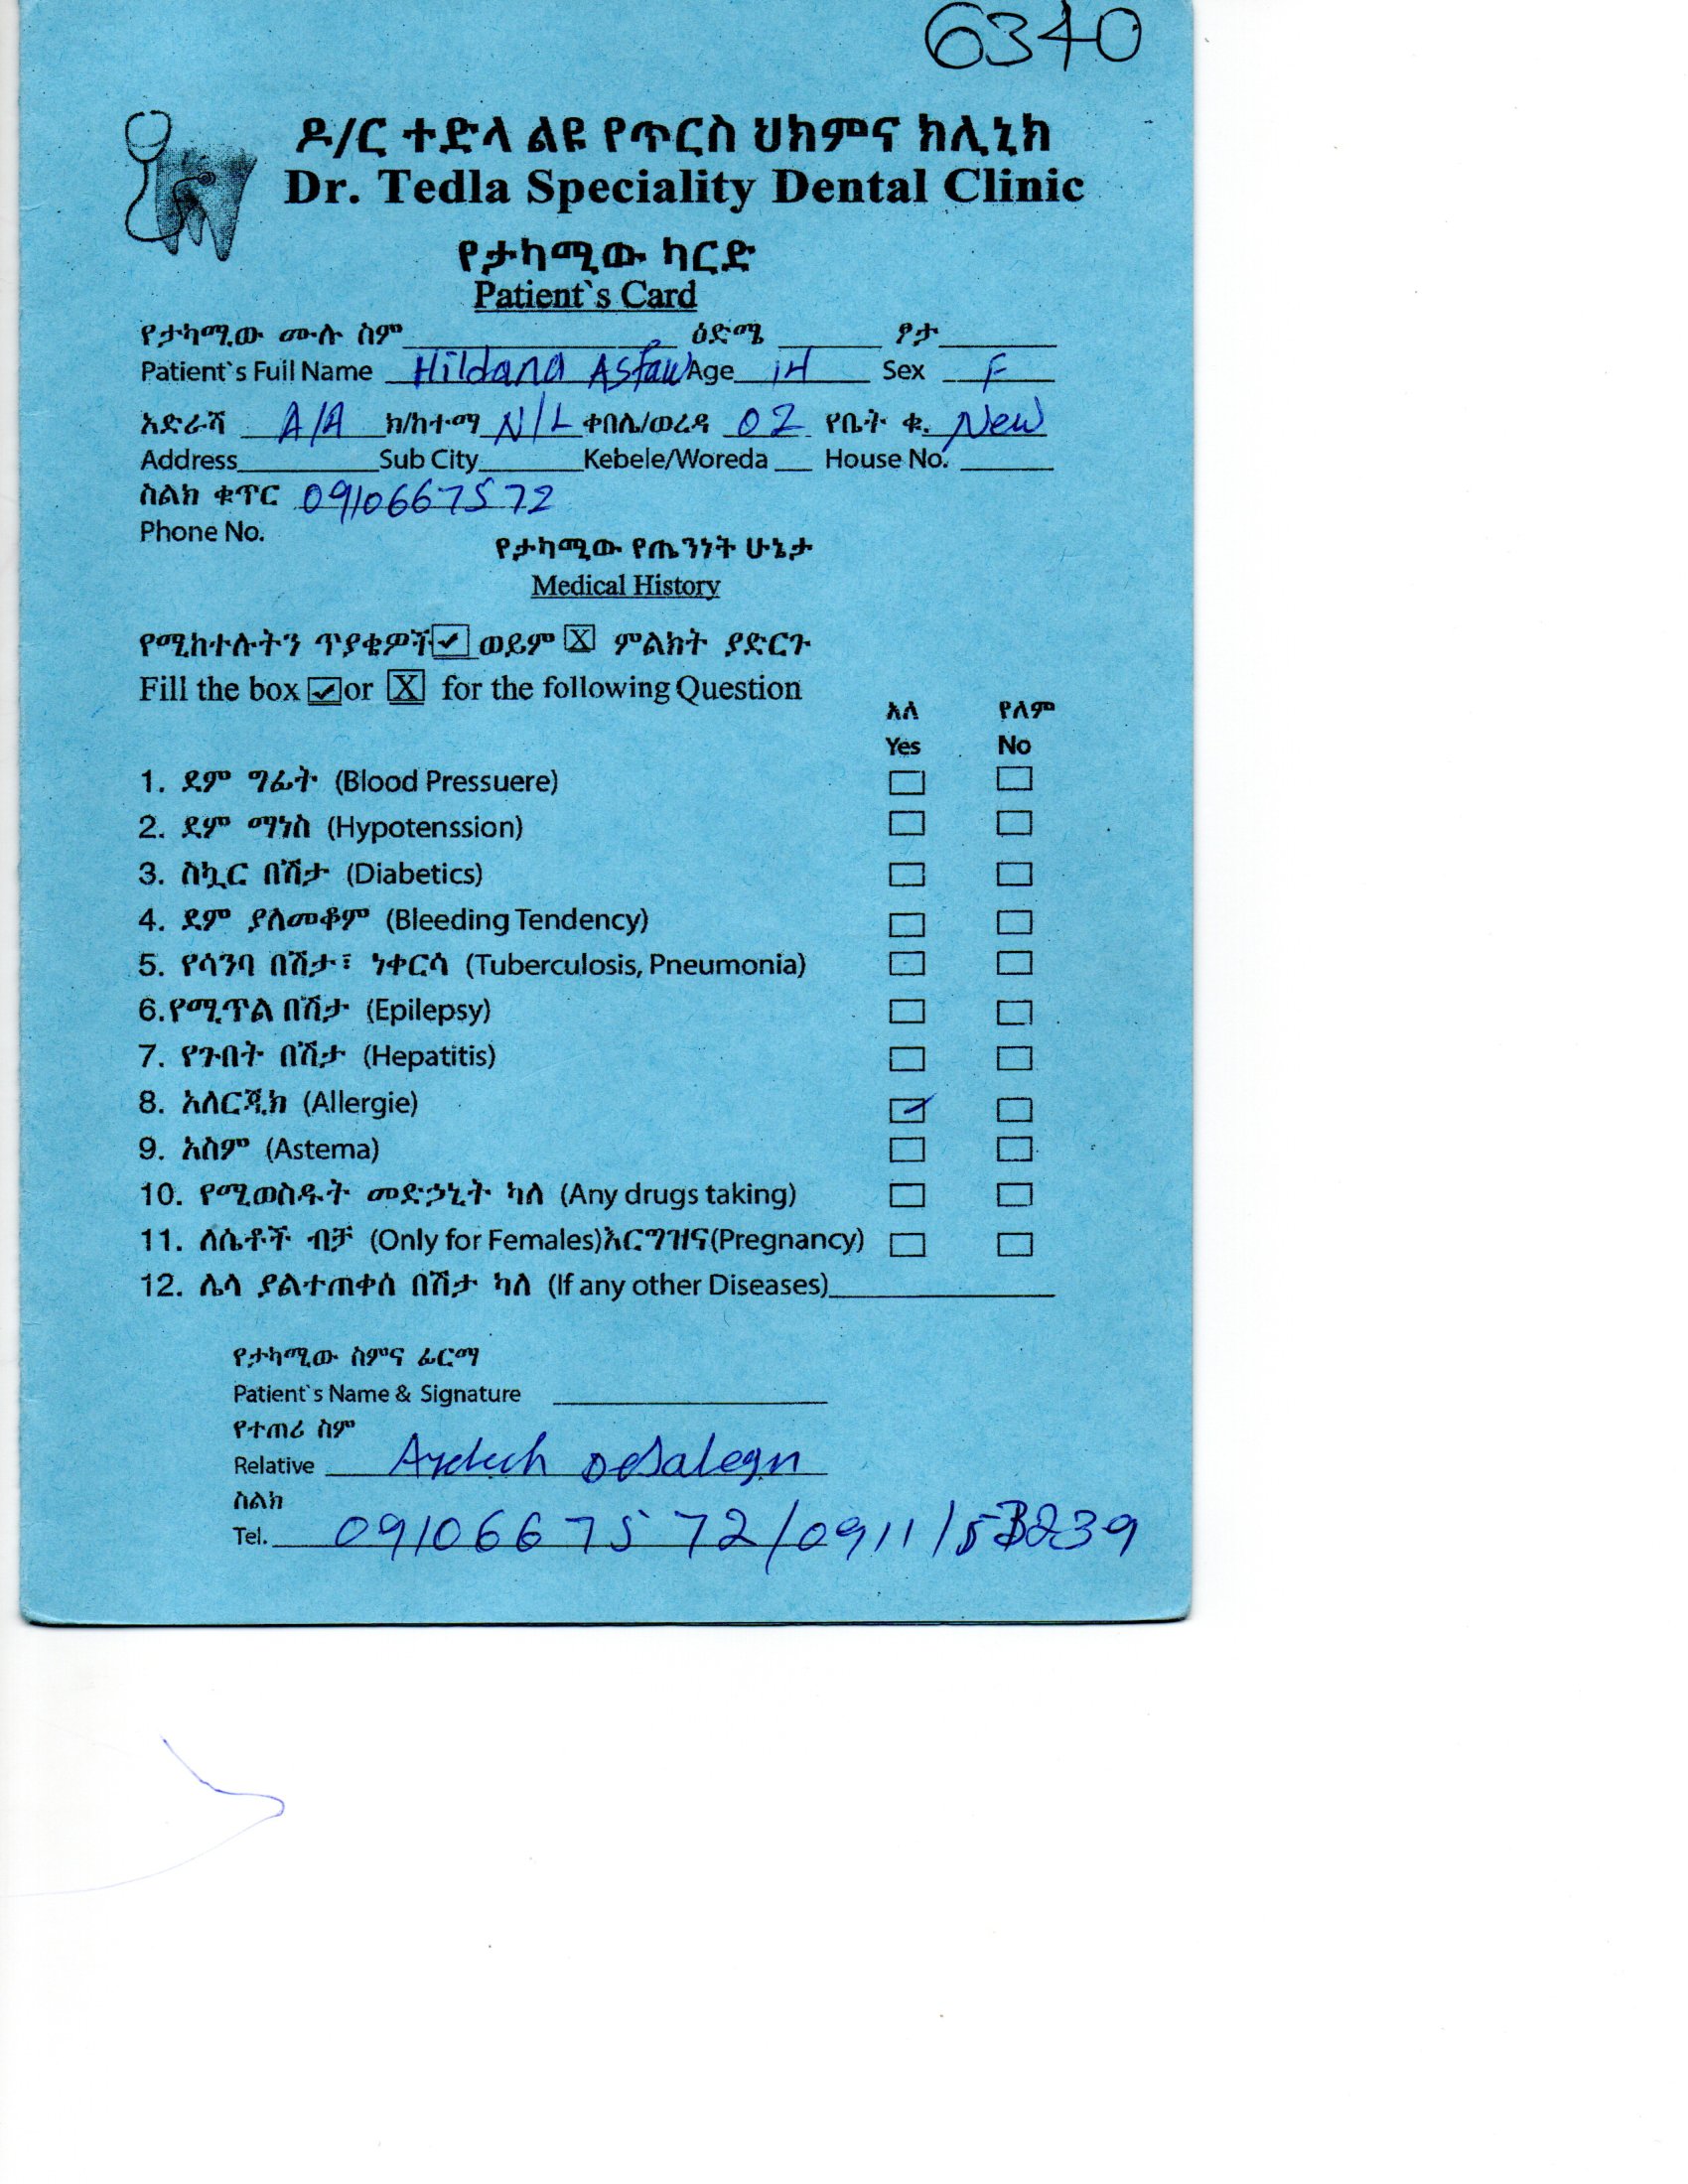 6340
ዶ/ር ተድላ ልዩ የጥርስ ህክምና ክሊኒክ
Dr. Tedla Speciality Dental Clinic
የታካሚው ካርድ
Patient`s Card
የታካሚው ሙሉ ስም ዕድሜ ፆታ
Patient`s Full Name Hildana Asfaw Age 14 Sex F
አድራሻ A/A ክ/ከተማ N/L ቀበሌ/ወረዳ 02 የቤት ቁ. New
Address Sub City Kebele/Woreda House No.
ስልክ ቁጥር 0910667572
Phone No.
የታካሚው የጤንነት ሁኔታ
Medical History
የሚከተሉትን ጥያቄዎች ✓ ወይም X ምልክት ያድርጉ
Fill the box ✓ or X for the following Question
አለ የለም
Yes No
1. ደም ግፊት (Blood Pressuere)
2. ደም ማነስ (Hypotenssion)
3. ስኳር በሽታ (Diabetics)
4. ደም ያለመቆም (Bleeding Tendency)
5. የሳንባ በሽታ፣ ነቀርሳ (Tuberculosis, Pneumonia)
6.የሚጥል በሽታ (Epilepsy)
7. የጉበት በሽታ (Hepatitis)
8. አለርጂክ (Allergie) ✓
9. አስም (Astema)
10. የሚወስዱት መድኃኒት ካለ (Any drugs taking)
11. ለሴቶች ብቻ (Only for Females)እርግዝና(Pregnancy)
12. ሌላ ያልተጠቀሰ በሽታ ካለ (If any other Diseases)
የታካሚው ስምና ፊርማ
Patient`s Name & Signature
የተጠሪ ስም
Relative Desalegn
ስልክ
Tel. 0910667572/0911